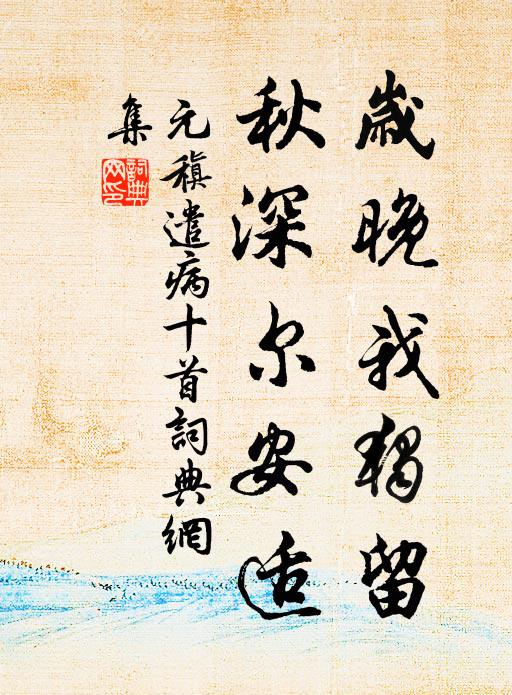 歲晚我獨留
秋深尔安适
元稹遣病十首詞典網
集
詞典
网印